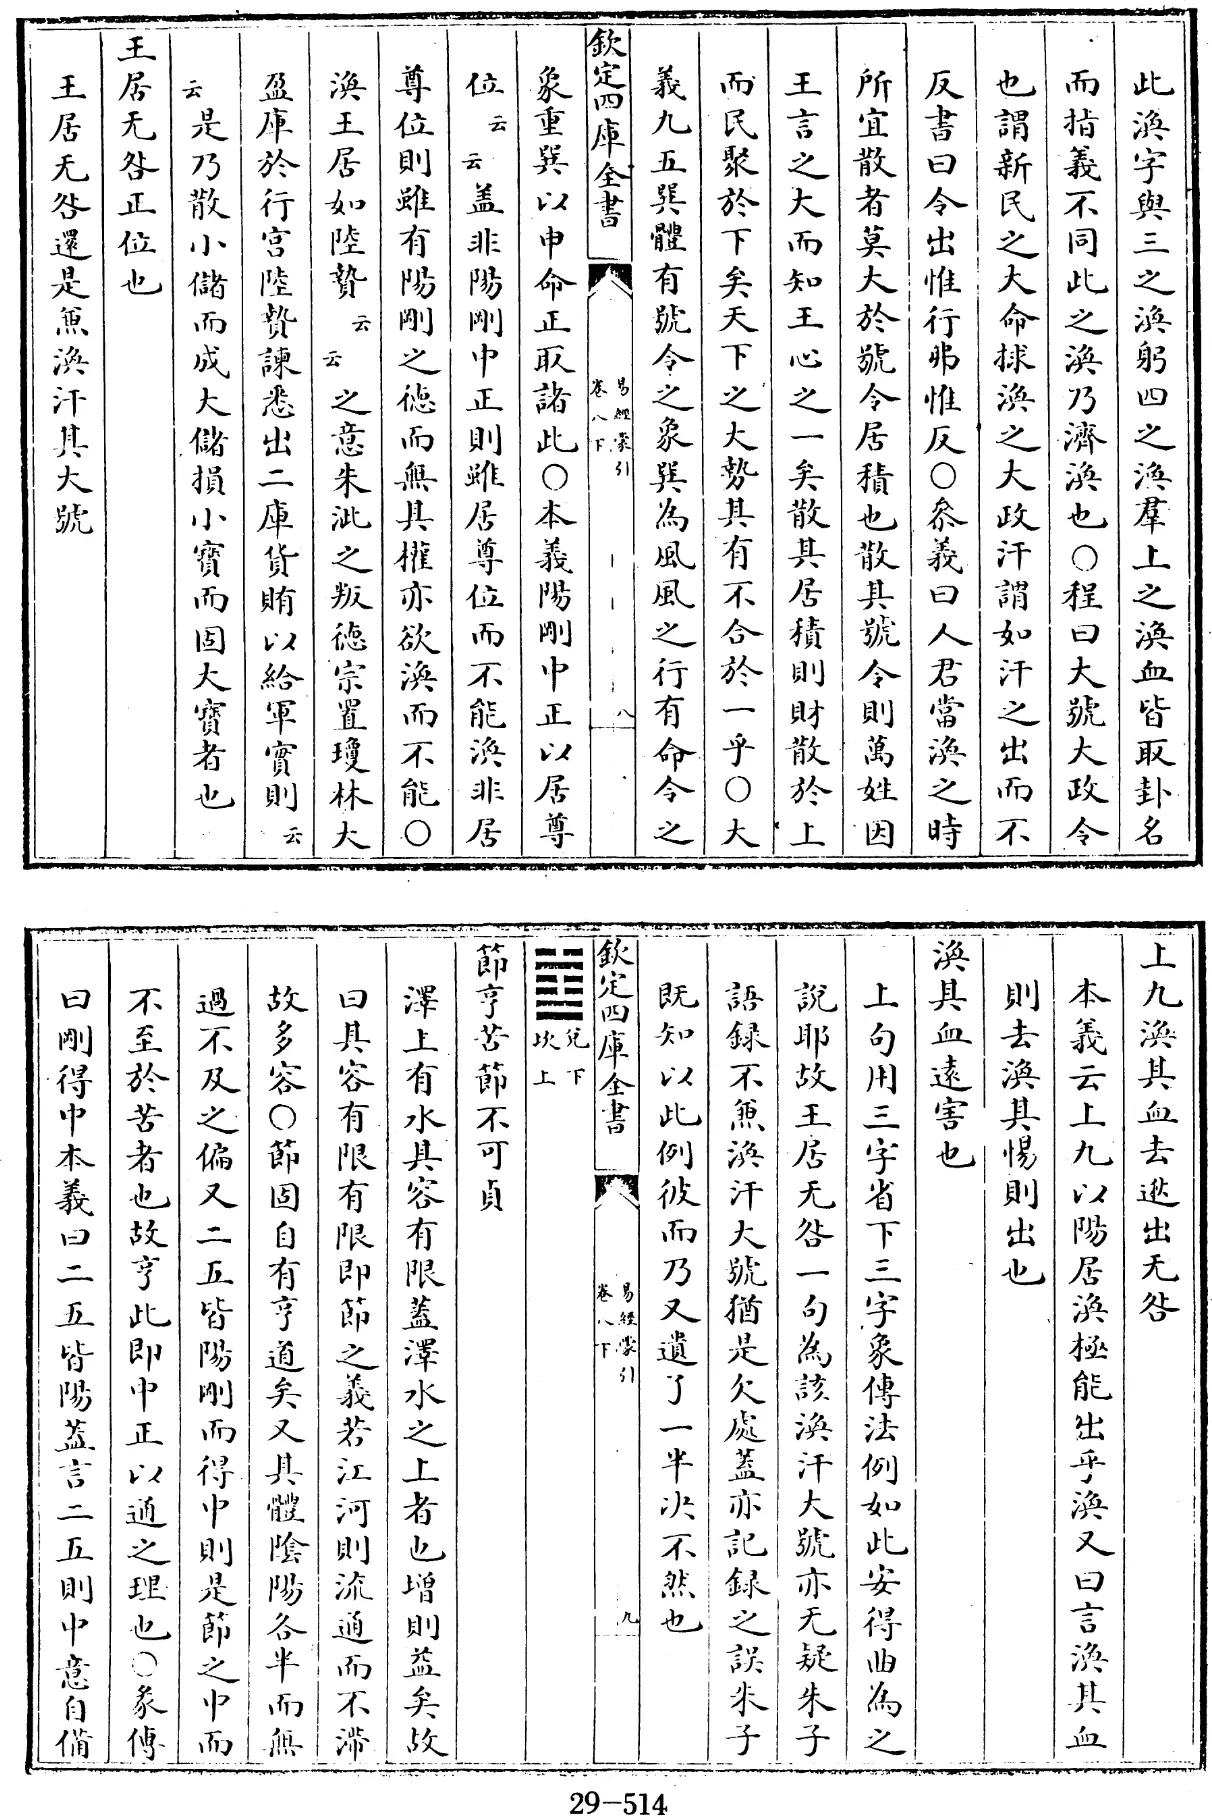 此渙字與三之渙躬四之渙羣上之渙血皆取卦名
而指義不同此之渙乃濟渙也○程曰大號大政令
也謂新民之大命捄渙之大政汗謂如汗之出而不
反書曰令出惟行弗惟反○叅義曰人君當渙之時
所宜散者莫大於號令居積也散其號令則萬姓因
王言之大而知王心之一矣散其居積則財散於上
而民聚於下矣天下之大勢其有不合於一乎○大
義九五巽體有號令之象巽為風風之行有命令之
欽定四庫全書
易經蒙引
卷八下
八
象重巽以申命正取諸此○本義陽剛中正以居尊
位云云盖非陽剛中正則雖居尊位而不能渙非居
尊位則雖有陽剛之德而無其權亦欲渙而不能○
渙王居如陸贄云云之意朱泚之叛德宗置瓊林大
盈庫於行宮陸贄諫悉出二庫貨賄以給軍實則云
云是乃散小儲而成大儲損小寳而固大寳者也
王居无咎正位也
王居无咎還是兼渙汗其大號
上九渙其血去逖出无咎
本義云上九以陽居渙極能出乎渙又曰言渙其血
則去渙其惕則出也
渙其血遠害也
上句用三字省下三字象傳法例如此安得曲為之
說耶故王居无咎一句為該渙汗大號亦无疑朱子
語録不兼渙汗大號猶是欠處蓋亦記録之誤朱子
既知以此例彼而乃又遺了一半决不然也
欽定四庫全書
易經蒙引
卷八下
九
兌下
坎上
節亨苦節不可貞
澤上有水其容有限蓋澤水之上者也增則益矣故
曰其容有限有限即節之義若江河則流通而不滯
故多容○節固自有亨道矣又其體陰陽各半而無
過不及之偏又二五皆陽剛而得中則是節之中而
不至於苦者也故亨此即中正以通之理也○彖傳
曰剛得中本義曰二五皆陽蓋言二五則中意自備
29-514